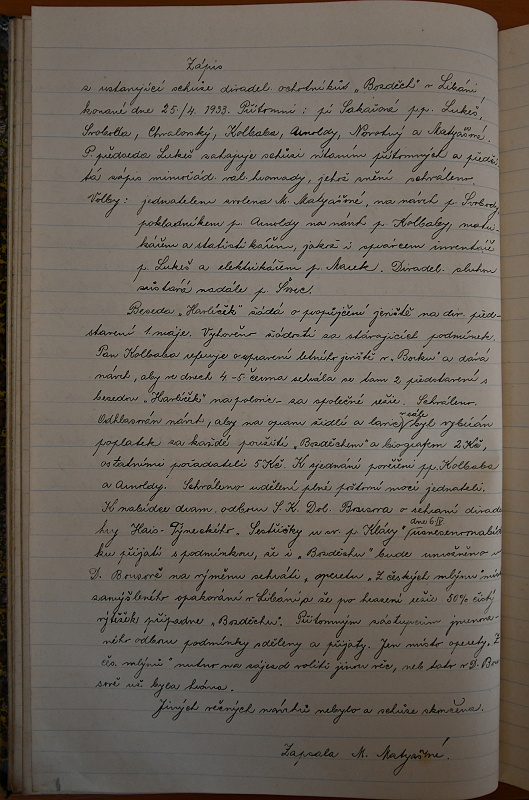 Zápis
z ustavující schůze divadel. ochotníků "Bozděch" v Libáni
konané dne 25./4. 1933. Přítomni: pí Sakařová pp. Lukeš,
Svoboda, Chvalovský, Kolbaba, Arnoldy, Novotný a Matyášové.
P. předseda Lukeš zahajuje schůzi vítáním přítomných a před-čí
tá zápis mimořád. val. hromady, jehož znění schváleno.
Volby: jednatelem zvolena M. Matyášové, na návrh p. Svobody,
pokladníkem p. Arnoldy na návrh p. Kolbaby,
kářem a statisti kářem, jakož i správcem inventáře
p. Lukeš a elektrikářem p. Marek. Divadel. sluhou
zůstává nadále p. Švec.
Beseda "Havlíček" žádá o propůjčení jeviště na div. před-
stavení 1. máje. Vyhověno žádosti za stávajících podmínek.
Pan Kolbaba referuje o spravení letního jeviště v "Borku" a dává
návrh, aby ve dnech 4.-5 června sehrála se tam 2 představení s
besedou "Havlíček" na polovic - za společné režie. Schváleno.
Odhlasován návrh, aby na opravu židlí a lavic v sále byl vybírán
poplatek za každé použití "Bozděchem" a biografem 2 Kč,
ostatními pořadateli 5 Kč. K sjednání pověřeni pp. Kolbaba
a Arnoldy. Schváleno udělení plné moci jednateli.
K nabídce dram. odboru S. K. Dol. Bousov o sehraní divadel
hry Hais-Týneckého "Sestřičky u sv. p. Kláry" dne 6/V
ku přijati s podmínkou, že i "Bozděchu" bude umožněno v
D. Bousově na výměnu sehráti "operetu "Z českých mlýnů"
zamýšleného opakování v Libáni a že po hrazení režie 50% čistý
výtěžek připadne "Bozděchu". Přítomným zástupcům jmenova-
ného odboru podmínky sděleny a přijaty. Jen místo operety "Z
čes. mlýnů" nutno na zájezd voliti jinou věc, neb tato v D. Bou
sově už byla hrána.
Jiných věcných návrhů nebylo a schůze skončena.
Zapsala M. Matyášové.